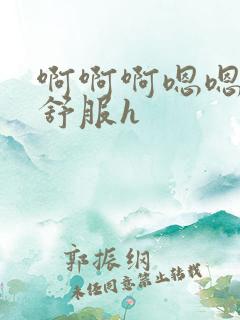 啊啊啊嗯嗯
舒服h
郭振纲
未经同意禁止转载